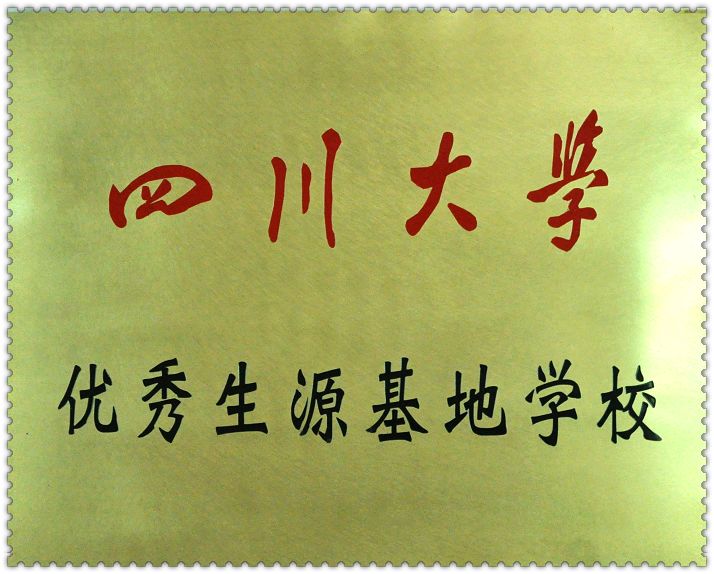 四川大学
优秀生源基地学校